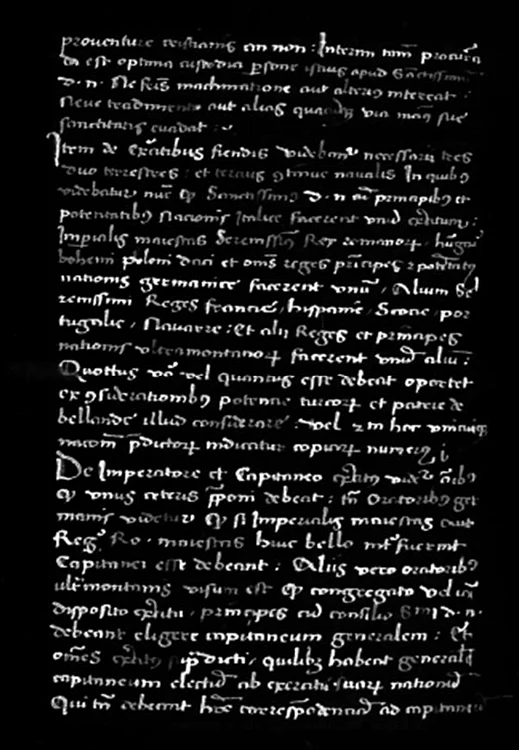 proventure christianis an non: Interim tn̄ procura
da est optima custodia p̱sone istius apud Sanctissimū
d. n. Ne seuis machinatione aut alterius intereat:
Neue tradimento aut alias quacūq̃ via man9 sue
sanctitatis euadat:
Item de exercitibus fiendis videbant̃ necessarii tres
duo terrestres: et tercius 9tinue naualis In quib9
videbatur nūc q̃ Sanctissim9 d. n. cū principib9 et
potentatib9 Nacionis Italice facerent vnū exercitum:
Imp̱ialis maiestas Serenissim9 Rex romanoꝝ, hūgarie
bohemi poloni daci et om̃s reges prīcipes 2 potētat9
nationis germanice facerent vnū, Alium Se
renissimi Reges francie, hispanie, Scocie, por
tugalie, Nauarre: Et alii Reges et principes
nationis vltramontanoꝝ facerent vnū aliū:
Quottus v̄o vel quantus esse debeat oportet
ex 9siderationib9 potencie turcoꝝ et patrie de
bellande illud considerare: vel 2 in hoc vniuersq
nacom̄ p̄dictoꝝ indicatur copiarꝝ numer9
De Imperatore et Capitaneo exercit9 videt̃ oīb9
q̃ vnus ceteris p̄poni debeat: tn̄ Oratorib9 ger
manis videtur q̃ si Imperialis maiestas aut
Reg. Ro. maiestas huic bello int̃fuerint
Capitanei esse debeant: Aliis vero oratorib9
vlt̃montanis visum est q̃ congregato vel iā
disposito exercitu, principes cū consilio Smi d. n.
debeant eligere capitaneum generalem: Et
om̄es exercit9 sup̄dicti, quilibz habeat generalē
capitaneum electū ab exercitu suarꝝ nationū
Qui tn̄ debeant h̄re correspondenciā ad capitaneū